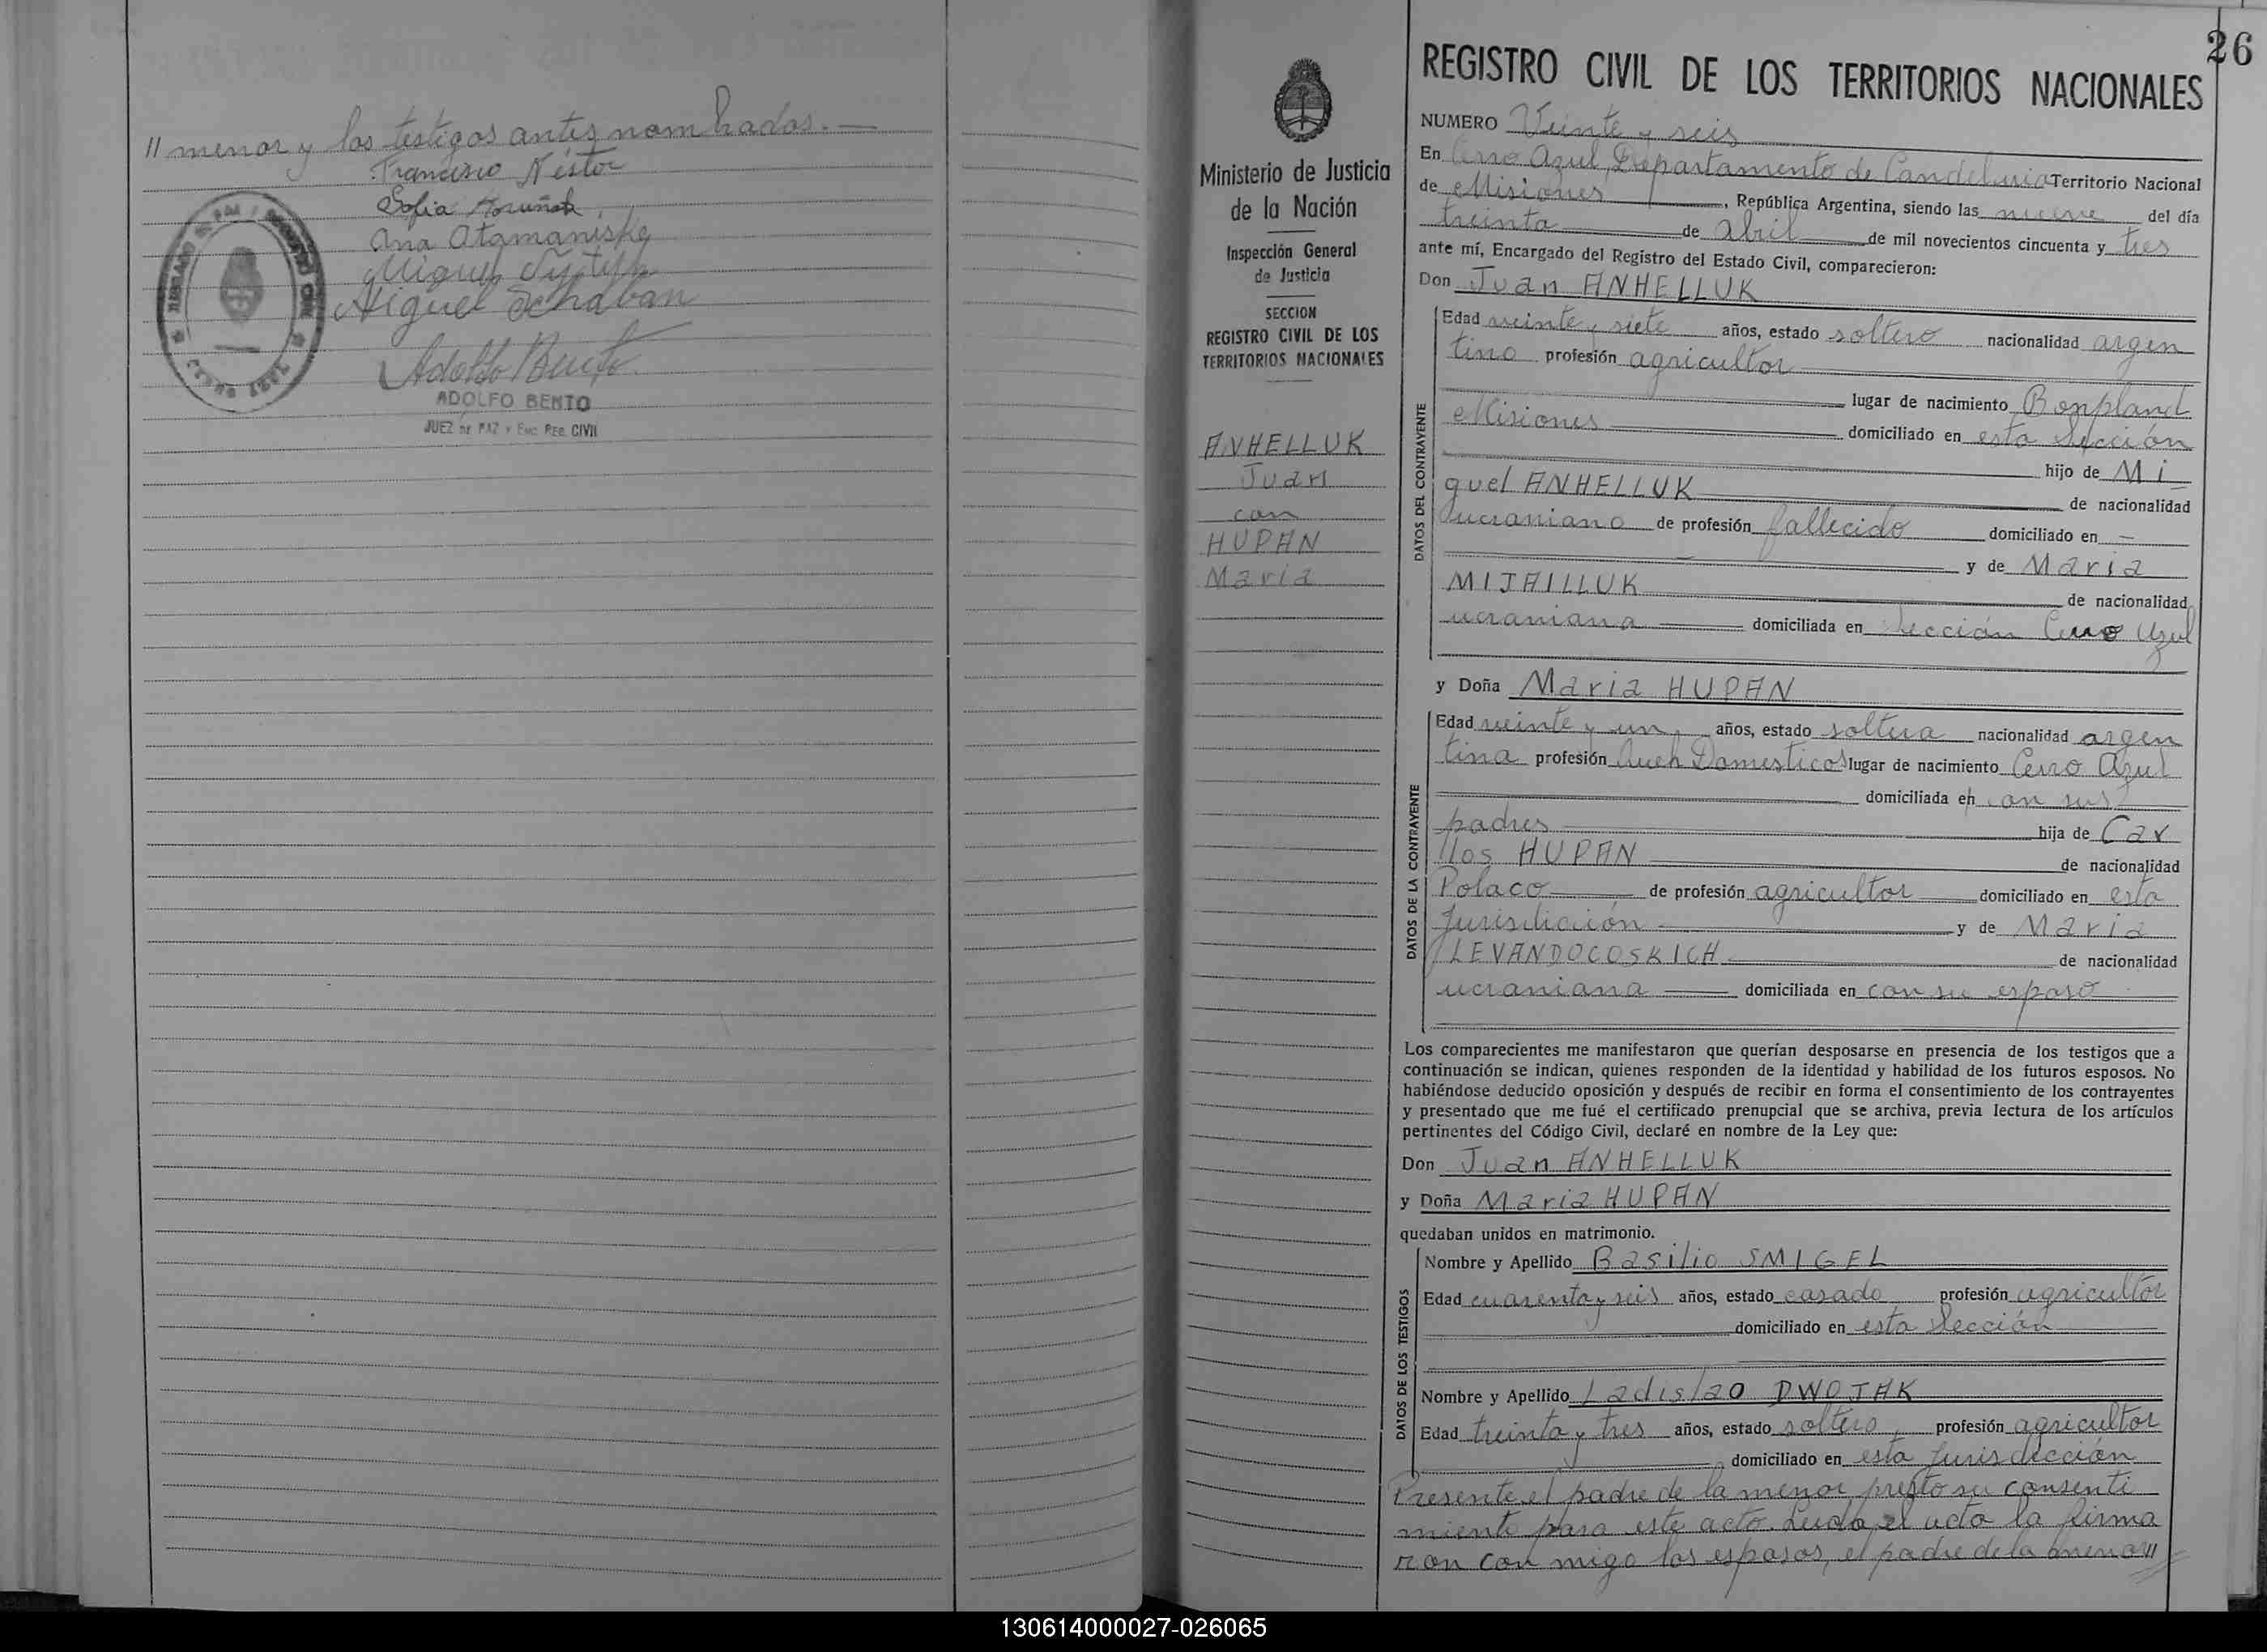 // menor y los testigos antes nombrados.—
Francisco Néstor
Sofia
Ana Atamaniske
Miguel
Miguel Schaban
Adolfo Bento
ADOLFO BENTO
JUEZ DE PAZ Y ENC. REG. CIVIL
26
REGISTRO CIVIL DE LOS TERRITORIOS NACIONALES
Ministerio de Justicia
de la Nación
Inspección General
de Justicia
SECCION
REGISTRO CIVIL DE LOS
TERRITORIOS NACIONALES
ANHELLUK
Juan
con
HUPAN
Maria
NUMERO Veinte y seis
En Cerro Azul, Departamento de Candelaria Territorio Nacional
de Misiones, República Argentina, siendo las nueve del día
treinta de Abril de mil novecientos cincuenta y tres
ante mí, Encargado del Registro del Estado Civil, comparecieron:
Don Juan ANHELLUK
DATOS DEL CONTRAYENTE
Edad veinte y siete años, estado soltero nacionalidad argen
tino profesión agricultor
lugar de nacimiento Bonpland
Misiones domiciliado en esta Sección
hijo de Mi
guel ANHELLUK de nacionalidad
ucraniano de profesión fallecido domiciliado en —
y de Maria
MIJAILLUK de nacionalidad
ucraniana domiciliada en Sección Cerro Azul
y Doña Maria HUPAN
DATOS DE LA CONTRAYENTE
Edad veinte y un años, estado soltera nacionalidad argen
tina profesión Queh Domesticos lugar de nacimiento Cerro Azul
domiciliada en con sus
padres hija de Car
los HUPAN de nacionalidad
Polaco de profesión agricultor domiciliado en esta
Jurisdición y de Maria
LEVANDOCOSKICH de nacionalidad
ucraniana domiciliada en con su esposo
Los comparecientes me manifestaron que querían desposarse en presencia de los testigos que a
continuación se indican, quienes responden de la identidad y habilidad de los futuros esposos. No
habiéndose deducido oposición y después de recibir en forma el consentimiento de los contrayentes
y presentado que me fué el certificado prenupcial que se archiva, previa lectura de los artículos
pertinentes del Código Civil, declaré en nombre de la Ley que:
Don Juan ANHELLUK
y Doña Maria HUPAN
quedaban unidos en matrimonio.
DATOS DE LOS TESTIGOS
Nombre y Apellido Basilio SMIGEL
Edad cuarenta y seis años, estado casado profesión agricultor
domiciliado en esta Sección
Nombre y Apellido Ladislao DWOJAK
Edad treinta y tres años, estado soltero profesión agricultor
domiciliado en esta Jurisdicción
Presente el padre de la menor prestó su consenti
miento para este acto. Leida el acta la firma
ron con migo los esposos, el padre de la menor //
130614000027-026065